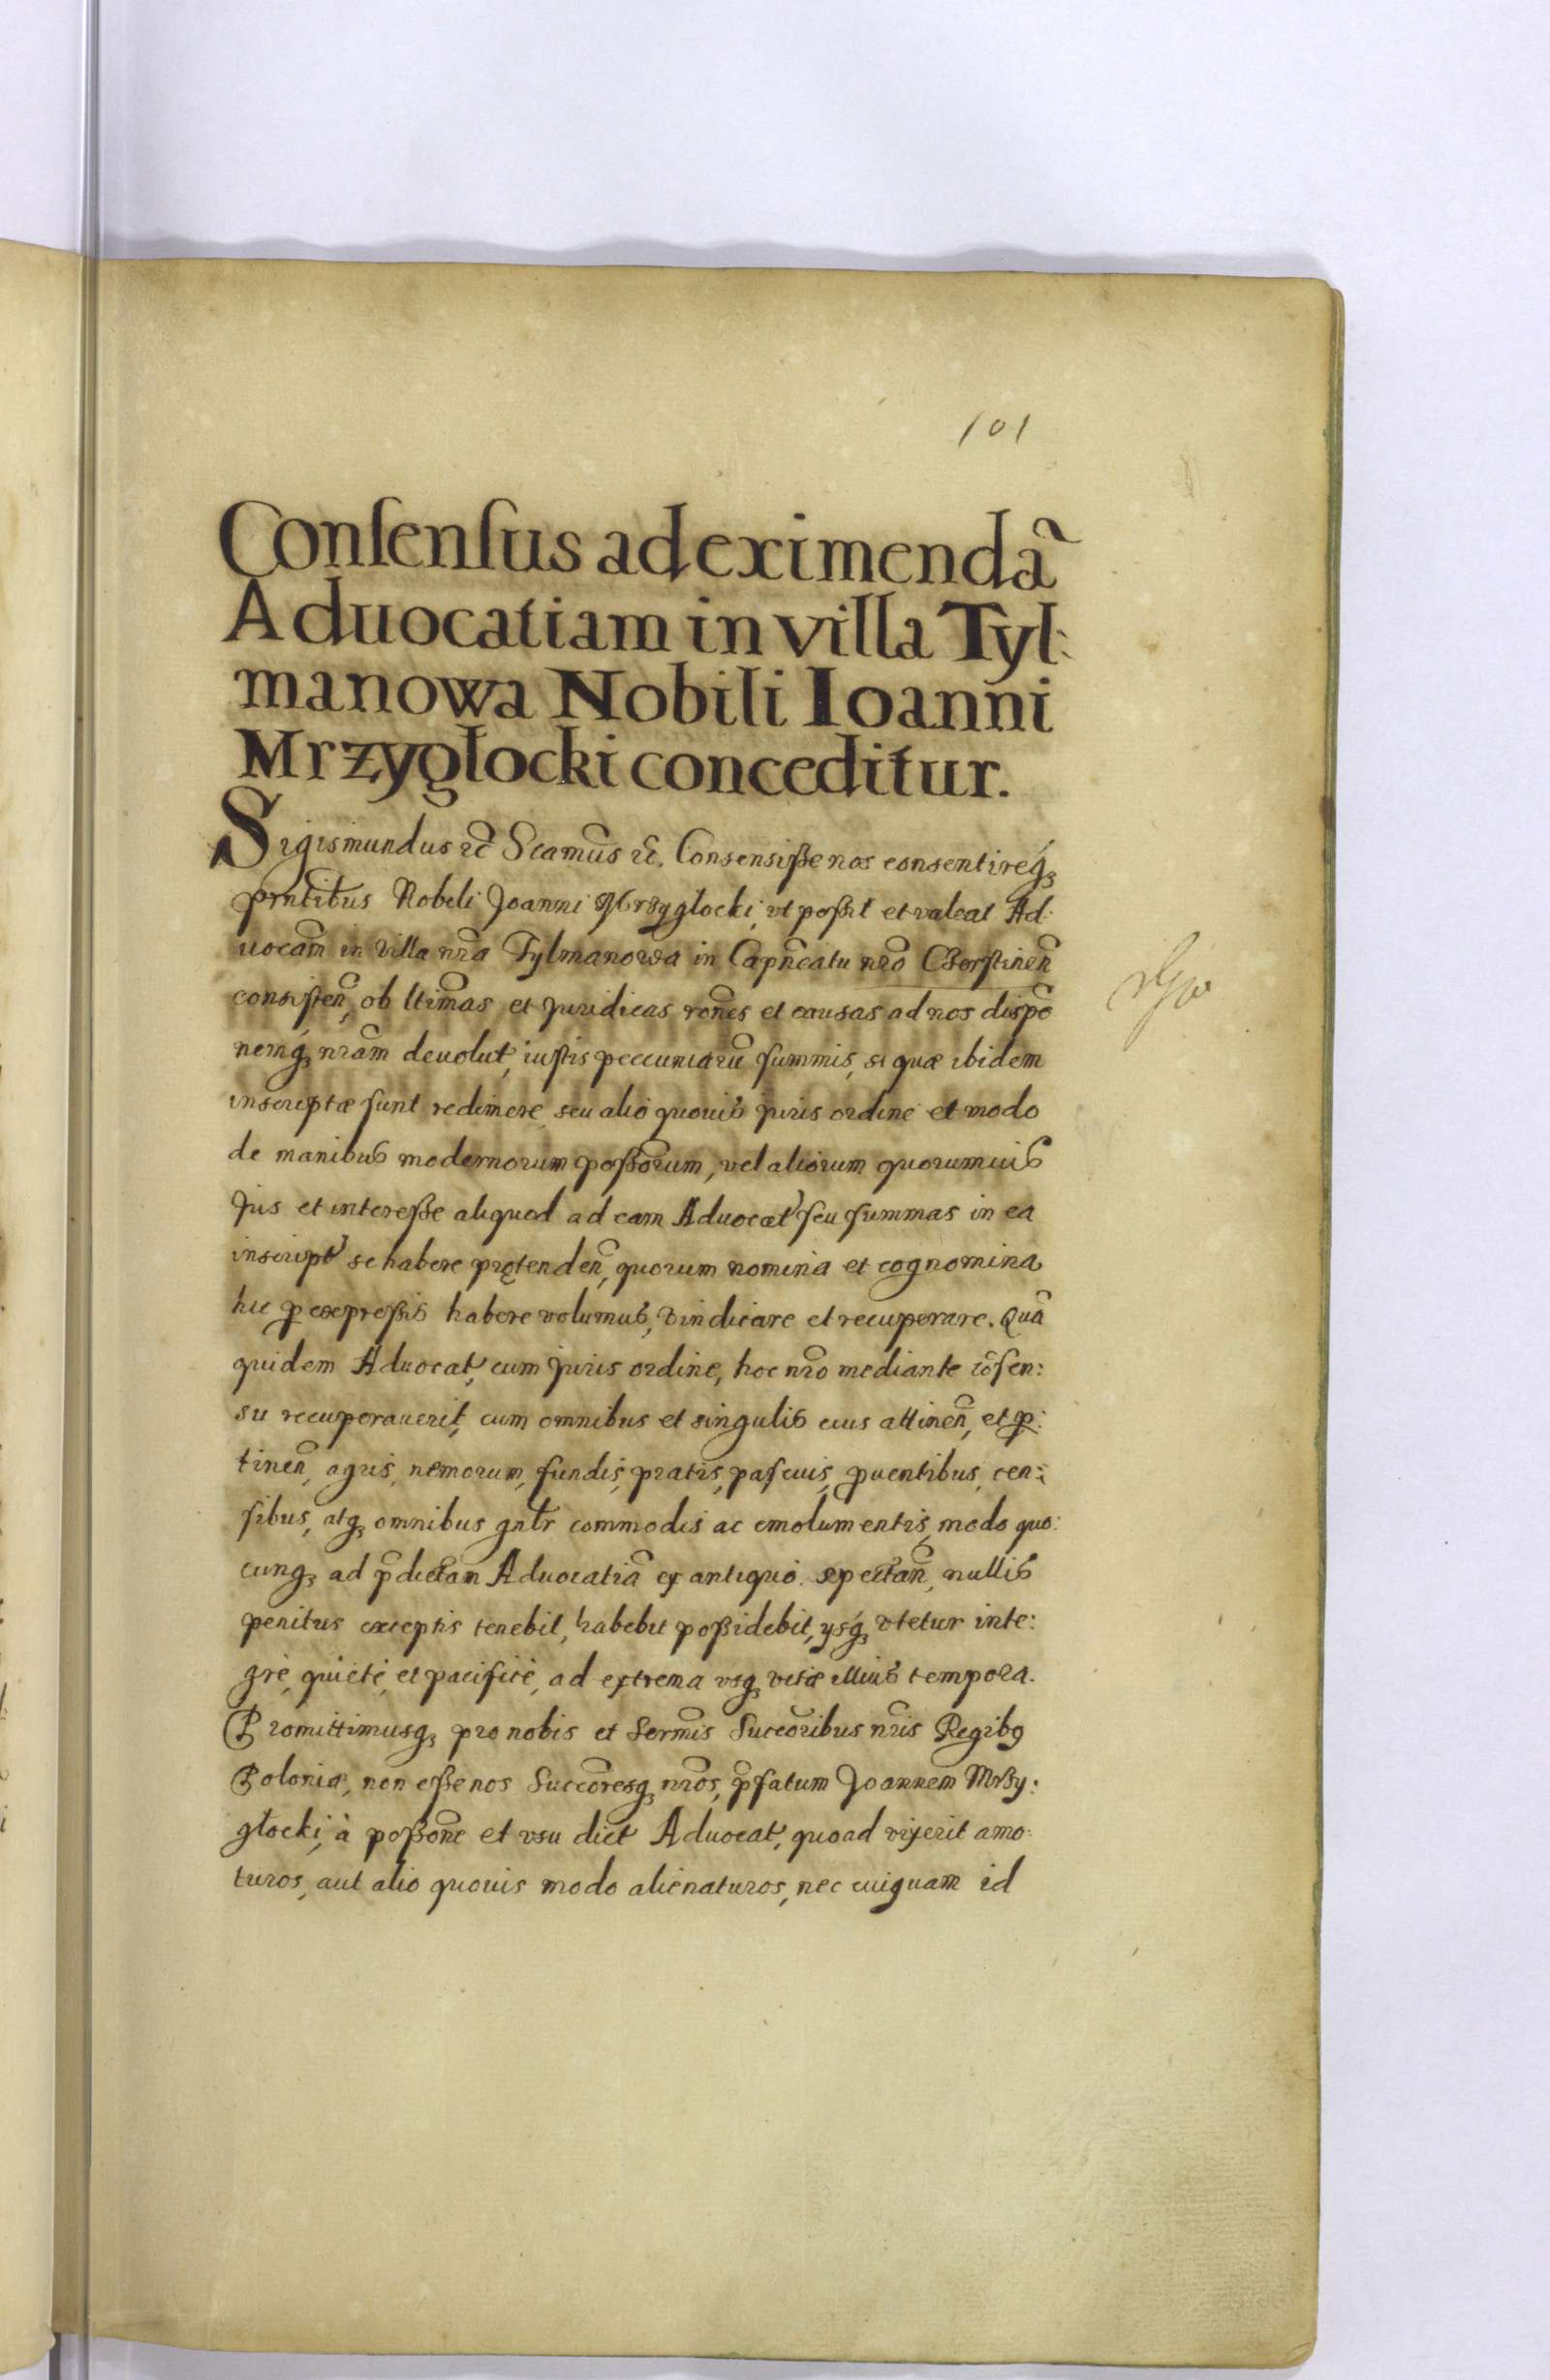 101
Conſenſus ad eximendã
Aduocatiam in villa Tyl:
manowa Nobili Ioanni
Mrzygłocki conceditur.
Sigismundus etc̃ Scamũs etc̃. Consensiße nos consentireq́ꝫ
prñtibus Nobili Joanni Mrzygłocki, vt poßit et valeat Ad:
uocãm in villa nrã Tylmanowa in Capñeatu nrõ Czorſtineñ
consiſteñ, ob ltimãs et Juridicas roñes et causas ad nos dispõ
nemqꝫ nrãm deuolut, iuſtis peccuniarũ ſummis, si quæ ibidem
inscriptæ ſunt redimere seu alio quouis juris ordine et modo
de manibus modernorum poßõrum, vel aliorum quorumuis
Jus et intereße aliquod ad eam Aduocat ſeu ſummas in ea
inscript se habere prętendeñ, quorum nomina et cognomina
hic ꝓ expreßis habere volumus, vindicare et recuperare. Quã
quidem Aduocat, cum juris ordine, hoc nrõ mediante cõſen:
su recuperauerit, cum omnibus et singulis eius attineñ, et ꝑ:
tineñ, agris, nemorum, fundis, pratis, paſcuis, ꝓuentibus, cen:
ſibus, atqꝫ omnibus gnlr̃ commodis ac emolumentis, modo quo:
cunqꝫ ad p̃dictam Aduocatiã ex antiquo spectañ, nullis
penitus exceptis tenebit, habebit poßidebit, ysq́ꝫ vtetur inte:
grè, quietè, et pacificè, ad extrema vsqꝫ vitæ illius tempora.
Promittimusqꝫ pro nobis et Sermĩs Succõribus nrĩs Regibꝯ
Poloniæ, non eße nos Succõresqꝫ nrõs, p̃fatum Joannem Mrzy:
głocki, à poßoñe et vsu dict Aduocat, quoad vixerit amo:
turos, aut alio quouis modo alienaturos, nec cuiquam id